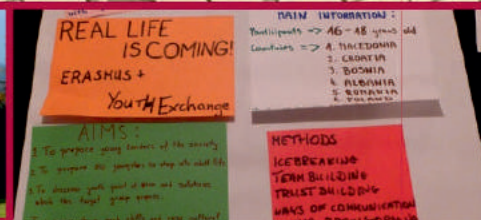 with
REAL LIFE
IS COMING!
ERASMUS +
Youth Exchange
MAIN INFORMATION:
Participants => 16-18 years old
Countries => 1. MACEDONIA
2. CROATIA
3. BOSNIA
4. ALBANIA
5. ROMANIA
6. POLAND
AIMS:
1. To prepare young leaders of the society
2. To prepare the youngsters to step into adult life
3. To discover youth point of view and solutions
which the target group
METHODS
ICEBREAKING
TEAM BUILDING
TRUST BUILDING
WAYS OF COMMUNICATION